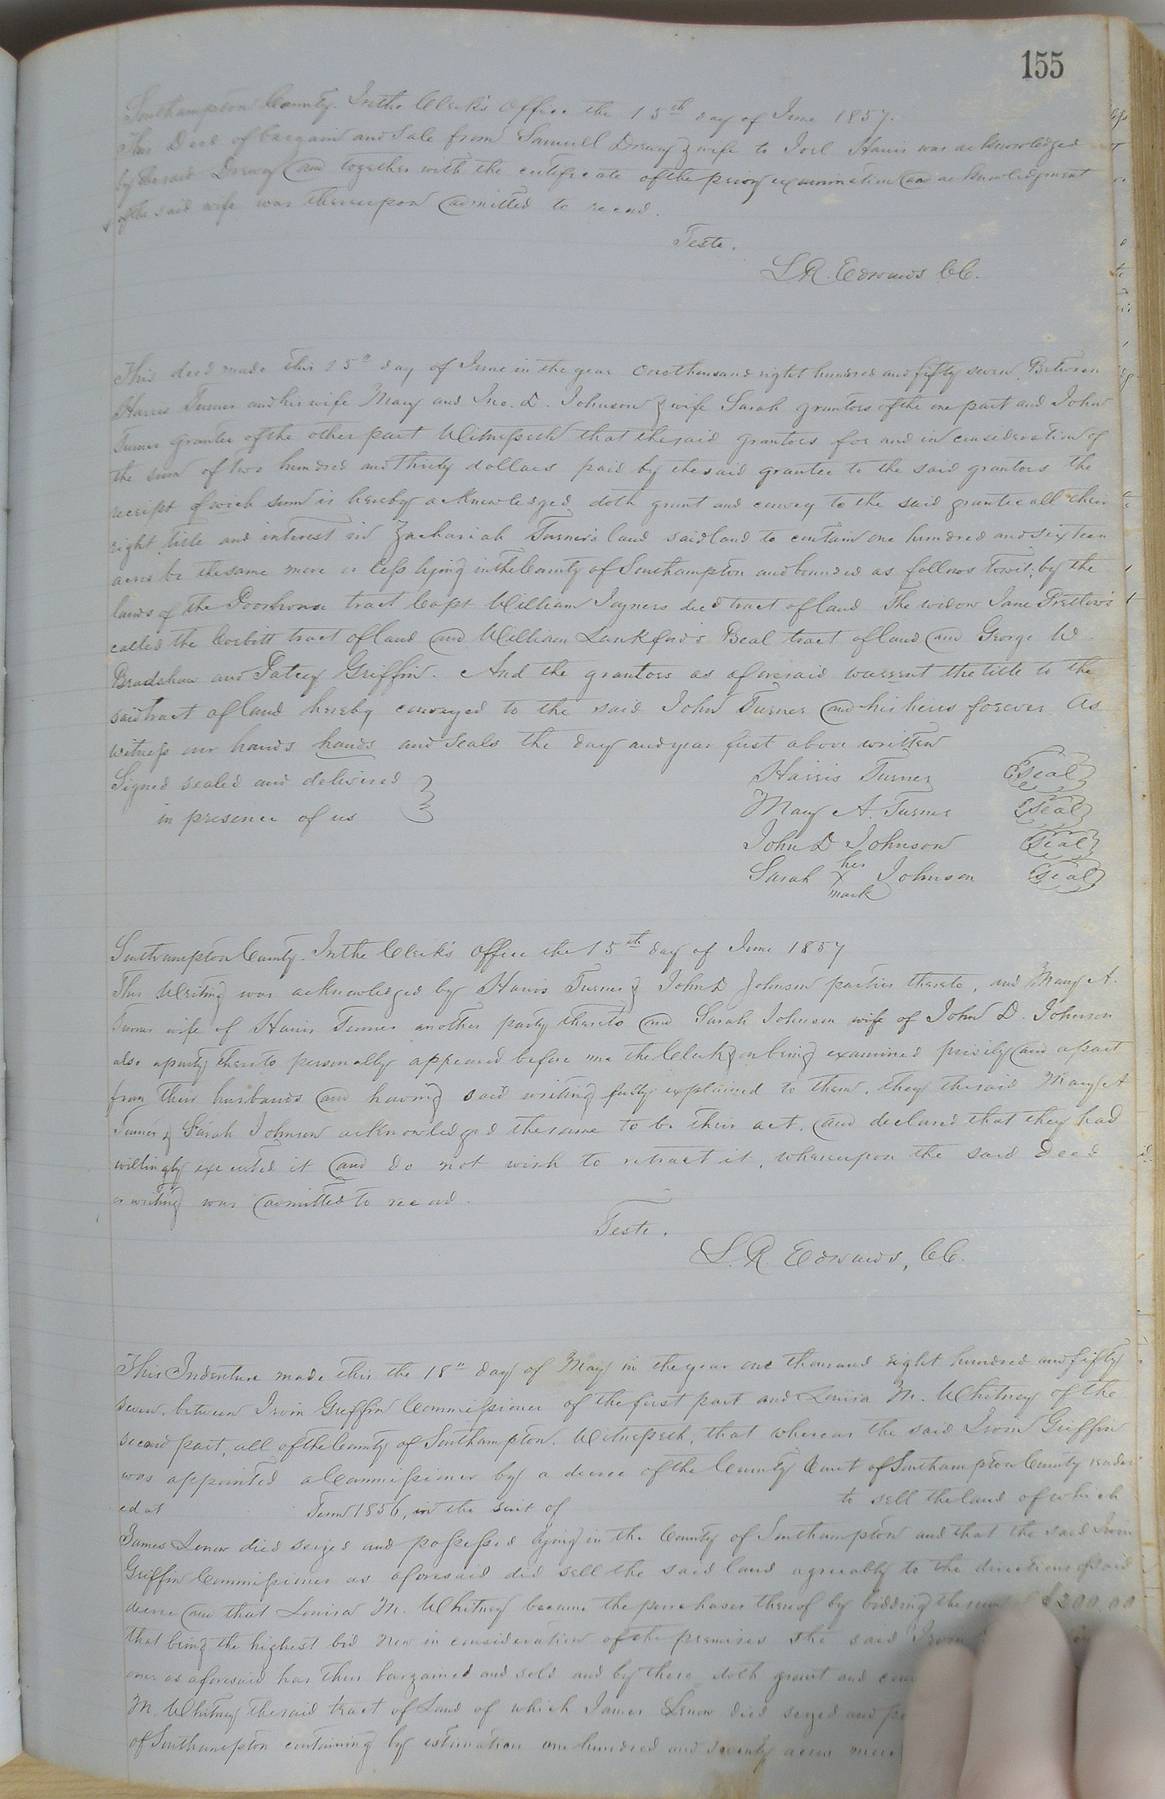 155
Southampton County. In the Clerk's Office the 15th day of June 1857.
This Deed of bargain and Sale from Samuel Drewry & wife to Joel Harris was acknowledged
by the said Drewry and together with the certificate of the privy examination and acknowledgment
of the said wife was thereupon admitted to record.
Teste.
L R. Edwards CC.
This deed made this 15th day of June in the year one thousand eight hundred and fifty seven. Between
Harris Turner and his wife Mary and Jno. D. Johnson & wife Sarah grantors of the one part and John
Turner grantee of the other part Witnesseth that the said grantors for and in consideration of
the sum of two hundred and thirty dollars paid by the said grantee to the said grantors the
receipt of wich sum is hereby acknowledged, doth grant and convey to the said grantee all their
right, title and interest in Zachariah Turner's land said land to contain one hundred and sixteen
acres be the same more or less lying in the County of Southampton and bounded as follows Towit; by the
lands of the Poorhouse tract Capt William Joyners died tract of land The widow Jane Pretlow's
called the Corbitt tract of land and William Lankford's Beal tract of land and George W
Bradshaw and Patcy Griffin. And the grantors as aforesaid warrent the title to the
said tract of land hereby conveyed to the said John Turner and his heirs forever As
witness our hands hands and seals the day and year first above written
Signed sealed and delivered
in presence of us
Harris Turner Seal
Mary A. Turner Seal
John D Johnson Seal
her
Sarah X Johnson Seal
mark
Southampton County. In the Clerk's Office the 15th day of June 1857
This Writing was acknowledged by Harris Turner & John D Johnson parties thereto, and Mary A.
Turner wife of Harris Turner another party thereto and Sarah Johnson wife of John D. Johnson
also a party thereto personally appeared before me the Clerk & being examined privily and apart
from their husbands and having said writing fully explained to them, they the said Mary A
Turner & Sarah Johnson acknowledged the same to be their act, and declared that they had
willingly executed it and do not wish to retract it, whereupon the said Deed
or writing was admitted to record.
Teste.
L. R. Edwards, CC.
This Indenture made this the 18th day of May in the year one thousand eight hundred and fifty
seven, between Irvin Griffin Commissioner of the first part and Louisa M. Whitney of the
second part, all of the County of Southampton. Witnesseth, that whereas the said Irvin Griffin
was appointed a Commissioner by a decree of the County Court of Southampton County render
ed at Term 1856, in the suit of to sell the land of which
James Lenow died seized and possessed lying in the County of Southampton and that the said Irvin
Griffin Commissioner as aforesaid did sell the said land agreeably to the directions of said
decree and that Louisa M. Whitney became the purchaser thereof by bidding the sum $200.00
that being the highest bid Now in consideration of the premises the said Irvin
oner as aforesaid has this bargained and sold and by these doth grant and
M. Whitney the said tract of Land of which James Lenow died seized and
of Southampton containing by estimation one hundred and seventy acres more